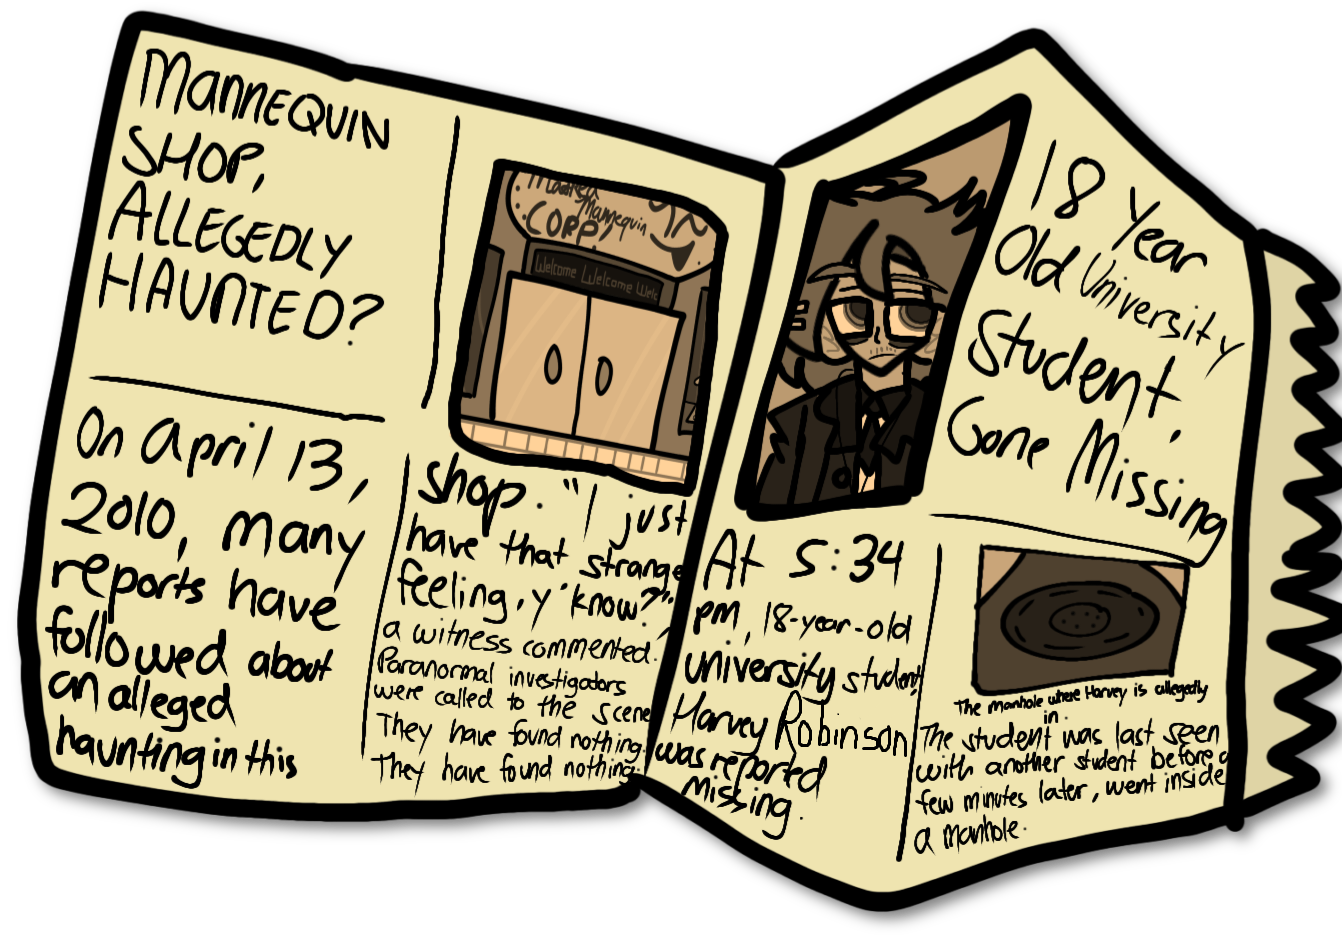 MANNEQUIN
SHOP,
ALLEGEDLY
HAUNTED?
On April 13,
2010, many
reports have
followed about
an alleged
haunting in this
Mannequin
CORP!
Welcome Welcome Welc
shop. "I just
have that strange
feeling, y'know?",
a witness commented.
Paranormal investigators
were called to the scene
They have found nothing.
They have found nothing.
18 Year
Old University
Student,
Gone Missing
At 5:34
pm, 18-year-old
university student
Harvey Robinson
was reported
missing.
The manhole where Harvey is allegedly
in.
The student was last seen
with another student before a
few minutes later, went inside
a manhole.